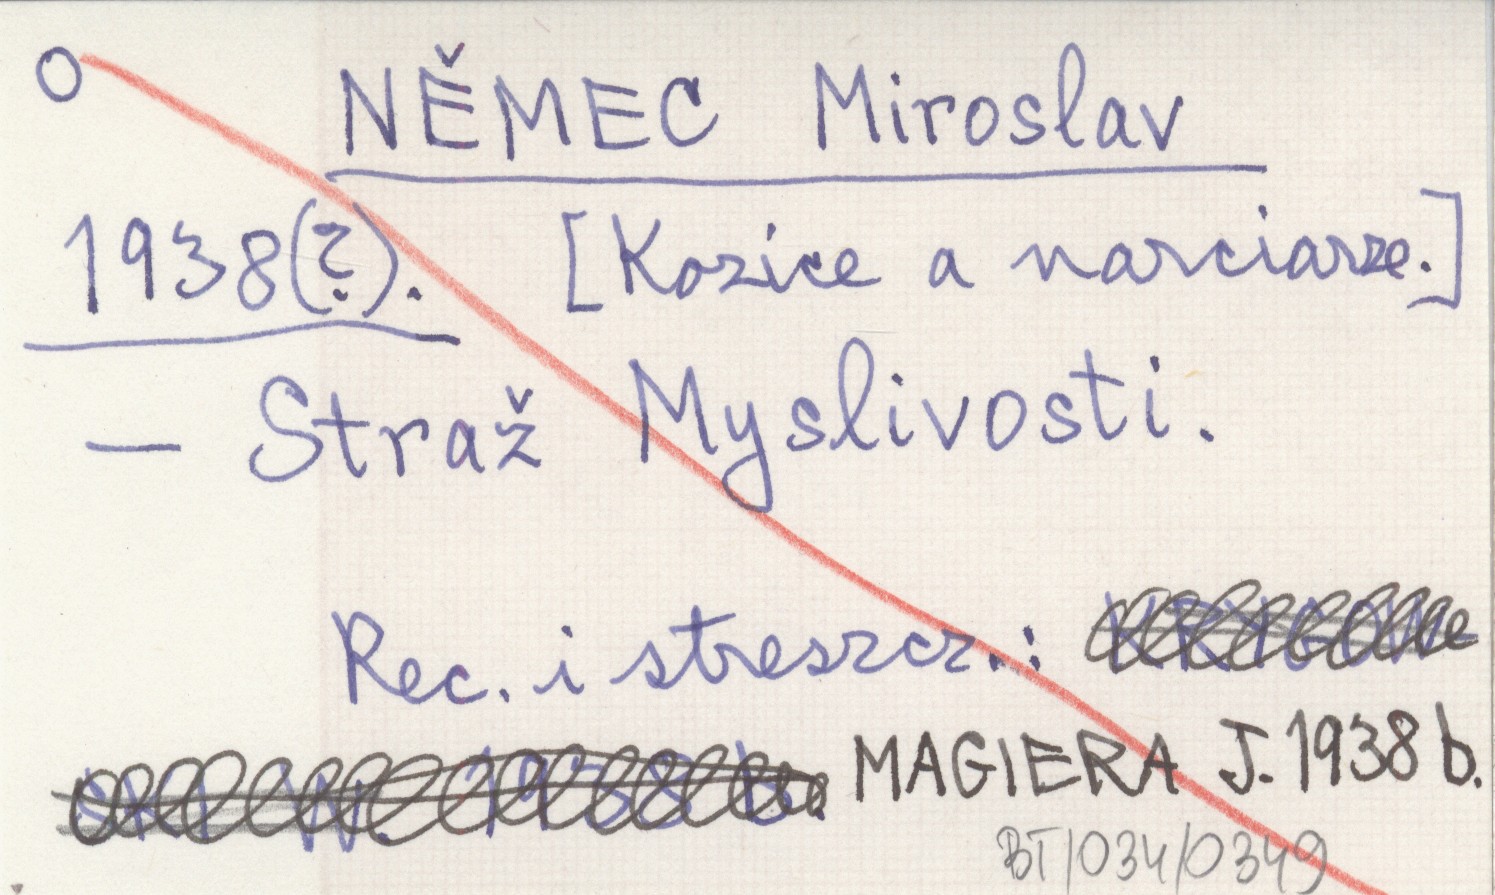 NĚMEC Miroslav
1938(?). [Kozice a narciarze.]
— Straž Myslivosti.
Rec. i streszcz.:
MAGIERA J. 1938 b.
BT/034/0349